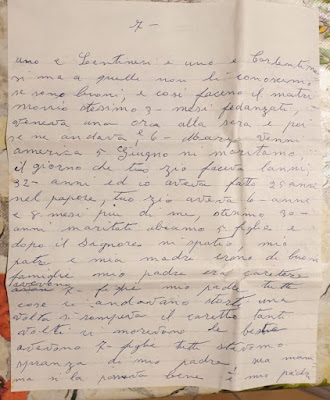 7 -
uno e Lentinesi e uno e Carlentin
si ma a quelle non li conoscemi
se sono buoni, e cosi faceno il matri
monio stessimo 3 - mesi fedanzati,
veneva una ora alla sera e poi
se ne andava e 6 - Marzo venni
america 5 Giugno ni maritamo,
il giorno che tuo zio faceva l'anni
32 - anni ed io aveva fatto 25 anni
nel papore, tuo zio aveva 6 - anni
e 8 mesi piu di me, stesimo 30 -
anni maritati abiamo 5 figlie e
dopo il Signore ni spatio mio
patri e mia madre erono di buoni
famiglie mio padre era caretiere
avevono 7 - figlie mio padre tutte
cose ci andavano storti una
volta si rompeva il caretto tanti
volti si morevono le bestie
avevono 7 - figlie tutte stavamo
spranza di mio padre, ma mam
ma si la pensata bene e mio padri